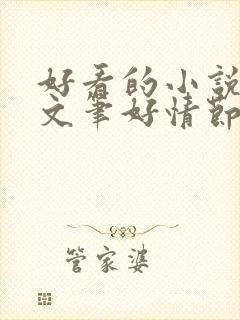 好看的小說
文筆好情節
管家婆